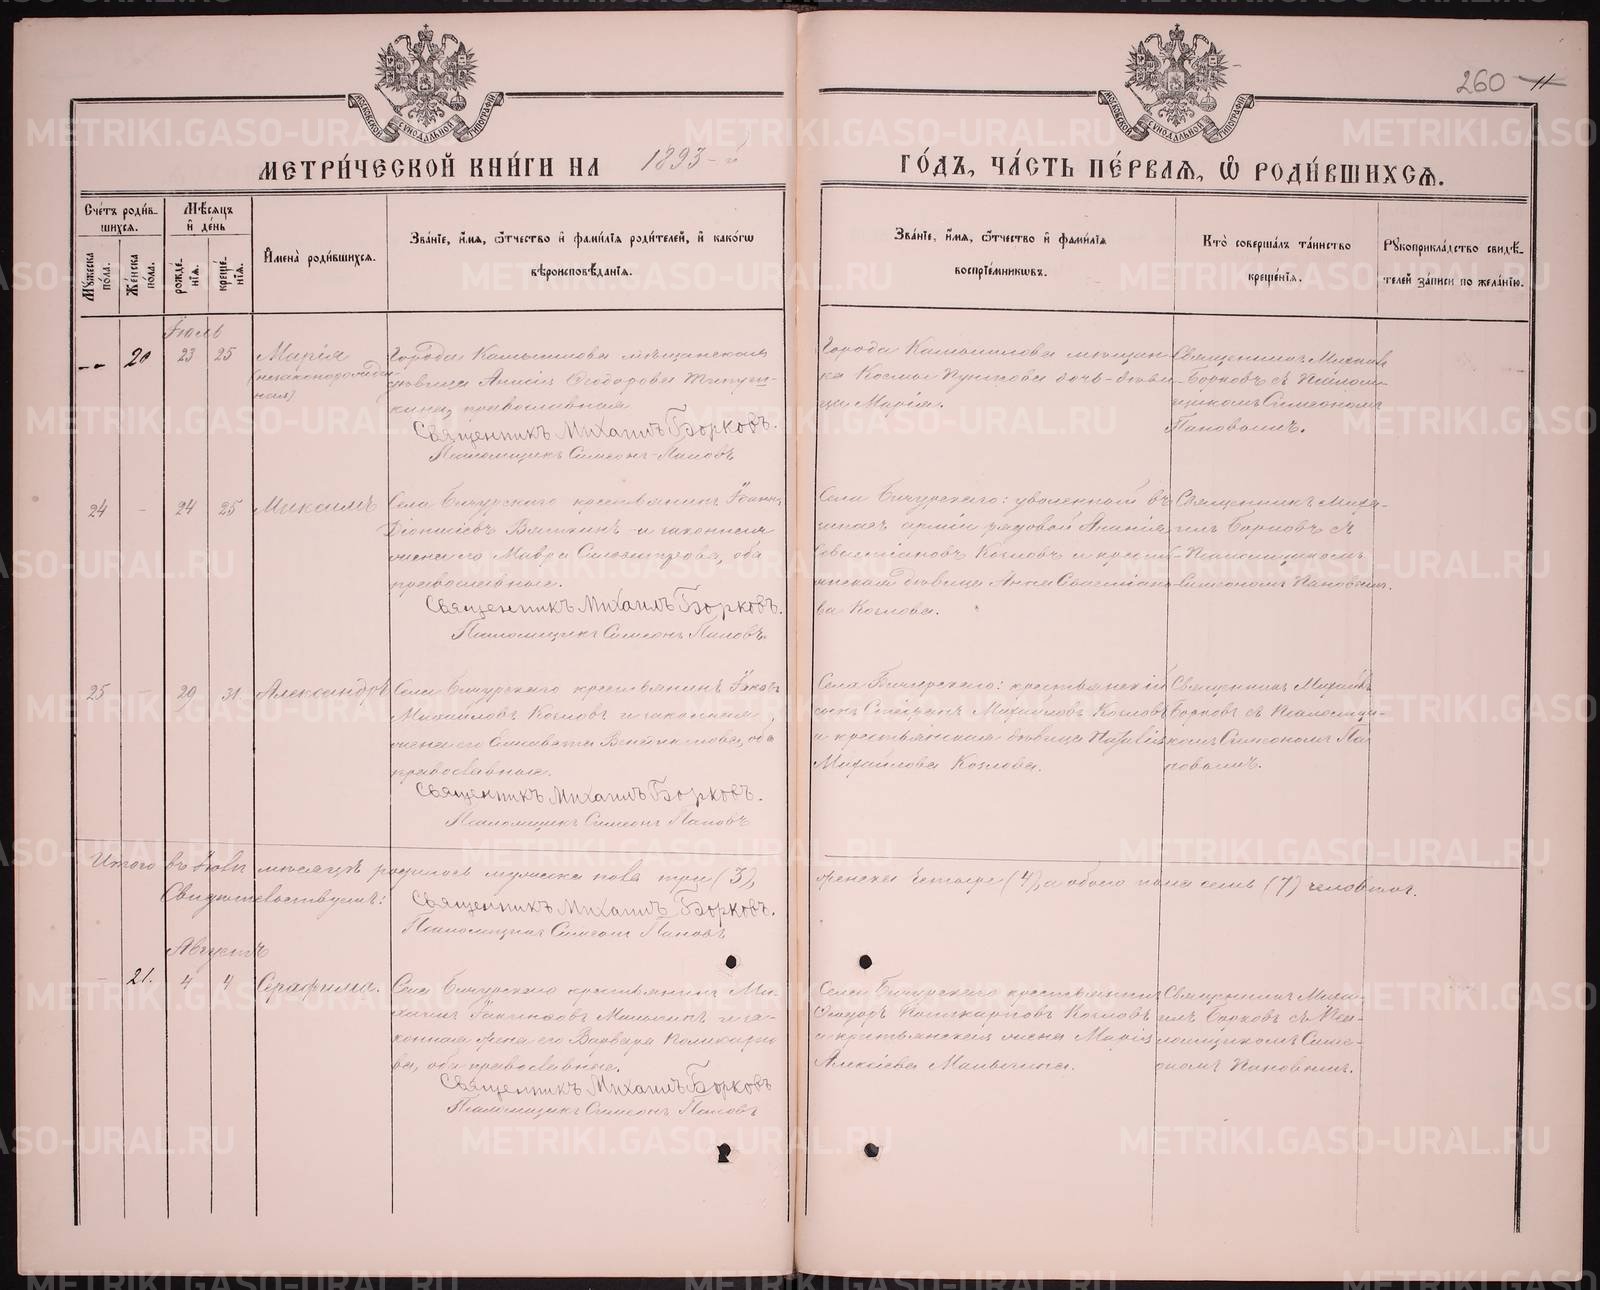 260 11
МЕТРИ́ЧЕСКОЙ КНИ́ГИ НА 1893-й ГО́ДЪ, ЧА́СТЬ ПЕ́РВАЯ, Ѽ РОДИ́ВШИХСЯ.
Сче́тъ роди́вшихся.
Мѣ́сяцъ и҆ де́нь
Мꙋ́жеска по́ла.
Же́нска по́ла.
рожде́нїѧ.
креще́нїѧ.
И҆мена̀ роди́вшихсѧ.
Зва́нїе, и҆́мѧ, ѻ҆́тчество и҆ фами́лїѧ роди́телей, и҆ како́гѡ
вѣроисповѣ́данїѧ.
Зва́нїе, и҆́мѧ, ѻ҆́тчество и҆ фами́лїѧ
воспрїе́мникѡвъ.
Кто̀ соверша́лъ та́инство
креще́нїѧ.
Рꙋкоприкла́дство свидѣ́-
телей за́писи по жела́нїю.
Іюль
-- 20 23 25 Марія
(незаконорожден-
ная)
Города Камышлова мѣщанская
дѣвица Анисія Ѳеодорова
православная
Священникъ Михаилъ Борковъ.
Псаломщикъ Симеонъ Паповъ
Города Камышлова мѣщани-
на Космы дочь-дѣви-
ца Марія.
Священникъ Михаилъ
Борковъ съ Псалом-
щикомъ Симеономъ
Паповымъ.
24 - 24 25 Максимъ
Села Бичурскаго крестьянинъ Іоаннъ
Діонисіевъ Вяткинъ и законная
жена его Мавра оба
православные.
Священникъ Михаилъ Борковъ.
Псаломщикъ Симеонъ Паповъ.
Села Бичурскаго: уволенный въ
запасъ арміи рядовой Ананія
Севастіановъ Козловъ и кресть-
янская дѣвица Анна Севастіано-
ва Козлова.
Священникъ Миха-
илъ Борковъ съ
Псаломщикомъ
Симеономъ Паповымъ.
25 - 29 31 Александръ
Села Бичурскаго крестьянинъ Іаковъ
Михаиловъ Козловъ и законная
жена его Елисавета Венедиктова, оба
православные.
Священникъ Михаилъ Борковъ.
Псаломщикъ Симеонъ Паповъ
Села Бичурскаго: крестьянскій
сынъ Стефанъ Михайловъ Козловъ
и крестьянская дѣвица Наталія
Михайлова Козлова.
Священникъ Михаилъ
Борковъ съ Псаломщи-
комъ Симеономъ Па-
повымъ.
Итого въ Іюлѣ мѣсяцѣ родилось мужеска пола три (3), женска четыре (4), а обоего пола семь (7) человѣкъ.
Свидѣтельствуемъ: Священникъ Михаилъ Борковъ.
Псаломщикъ Симеонъ Паповъ
Августъ
- 21. 4 4 Серафима.
Села Бичурскаго крестьянинъ Ми-
хаилъ Малыгинъ и за-
конная жена его Варвара Поликарпо-
ва, оба православные.
Священникъ Михаилъ Борковъ
Псаломщикъ Симеонъ Паповъ
Села Бичурскаго крестьянинъ
Ѳеодоръ Поликарповъ Козловъ
и крестьянская жена Марія
Алексіева Малыгина.
Священникъ Миха-
илъ Борковъ съ Пса-
ломщикомъ Симе-
ономъ Паповымъ.
METRIKI.GASO-URAL.RU